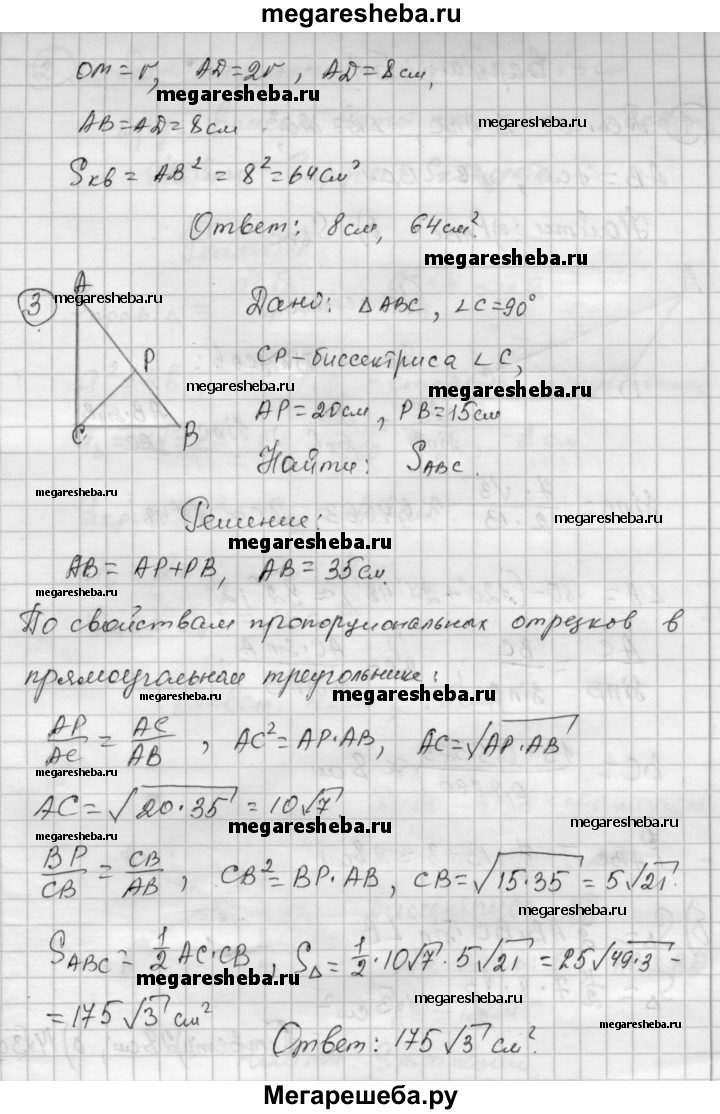 megaresheba.ru
OM = r, AD = 2r, AD = 8 см,
megaresheba.ru
megaresheba.ru
AB = AD = 8 см.
Sкв = AB² = 8² = 64 см²
Ответ: 8 см, 64 см².
megaresheba.ru
3
A
megaresheba.ru
Дано: △ABC, ∠C = 90°
P
CP – биссектриса ∠C,
megaresheba.ru
megaresheba.ru
AP = 20 см, PB = 15 см
C
B
Найти: SABC.
megaresheba.ru
Решение:
megaresheba.ru
megaresheba.ru
AB = AP + PB, AB = 35 см.
megaresheba.ru
По свойствам пропорциональных отрезков в
прямоугольном треугольнике:
megaresheba.ru
megaresheba.ru
AP/AC = AC/AB, AC² = AP · AB, AC = √AP · AB
megaresheba.ru
AC = √20 · 35 = 10√7,
megaresheba.ru
megaresheba.ru
BP/CB = CB/AB, CB² = BP · AB, CB = √15 · 35 = 5√21.
megaresheba.ru
SABC = 1/2 AC · CB, S△ = 1/2 · 10√7 · 5√21 = 25√49 · 3 =
megaresheba.ru
megaresheba.ru
= 175√3 см²
megaresheba.ru
Ответ: 175√3 см².
Мегарешеба.ру